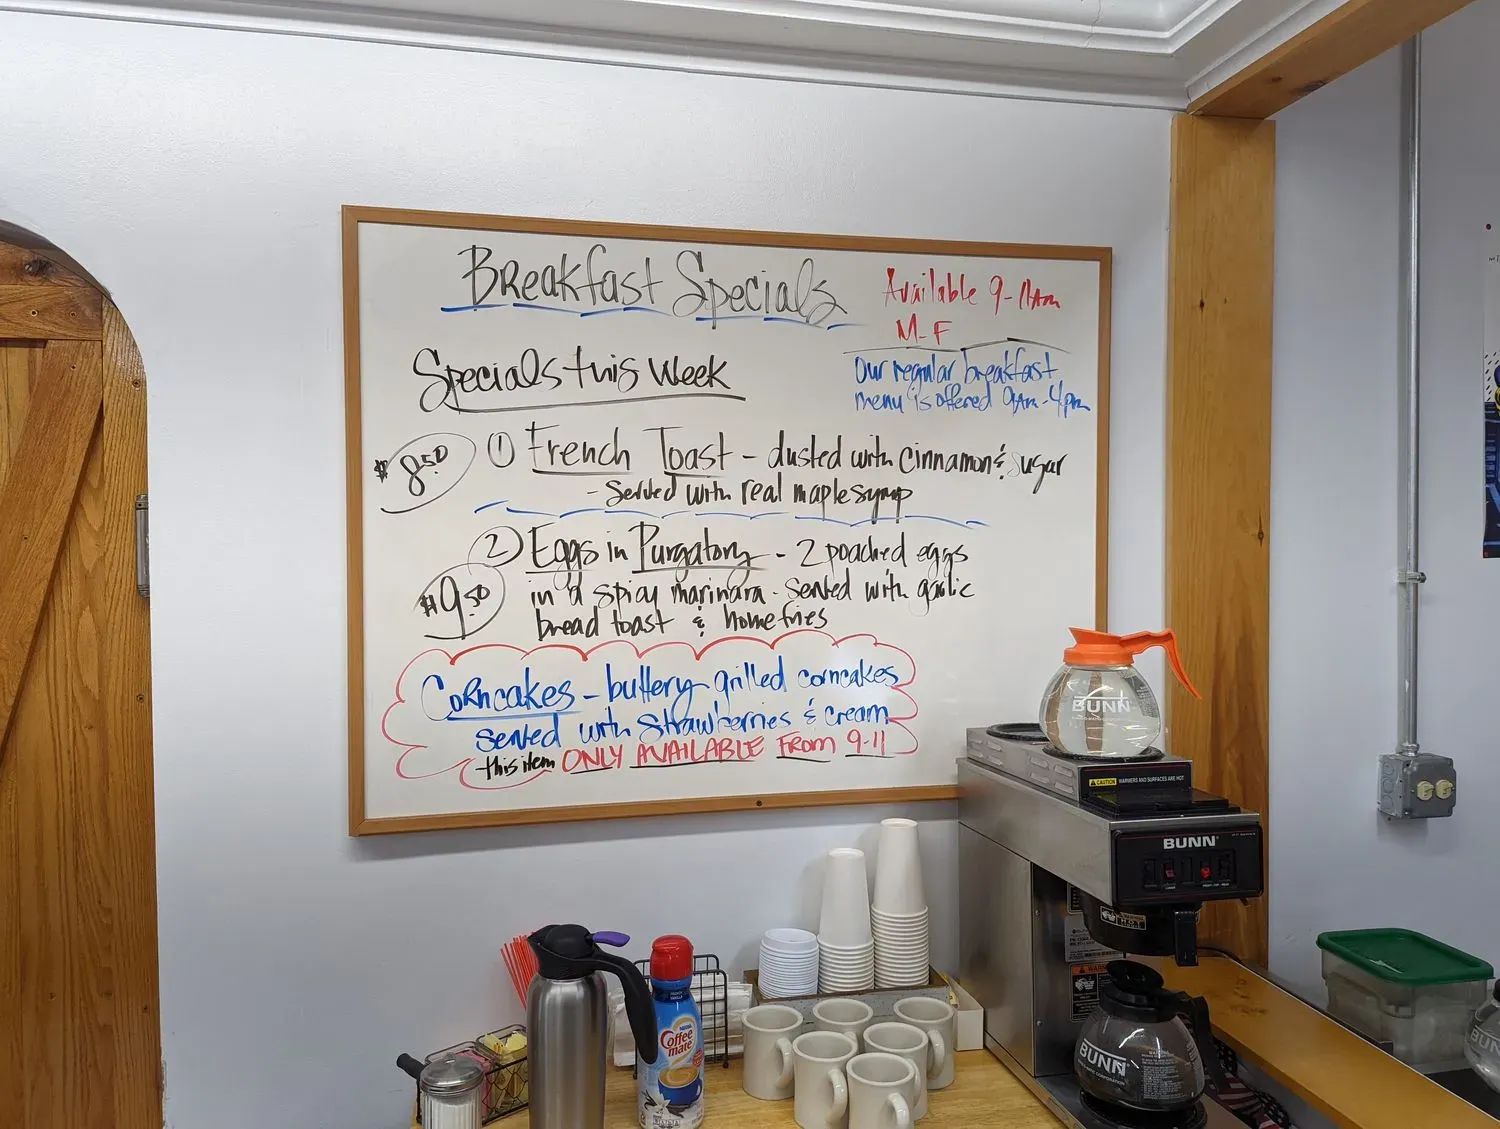 Breakfast Specials
Available 9-11am
M-F
Our regular breakfast
menu is offered 9am-4pm
Specials this Week
$8.50
① French Toast - dusted with cinnamon & sugar
- Served with real maple syrup
② Eggs in Purgatory - 2 poached eggs
$9.50
in a spicy marinara - served with garlic
bread toast & homefries
Corncakes - buttery grilled corncakes
served with strawberries & cream
this item ONLY AVAILABLE FROM 9-11
BUNN
CAUTION WARMERS AND SURFACES ARE HOT
BUNN
HOT
Nestle
Coffee
mate
BUNN